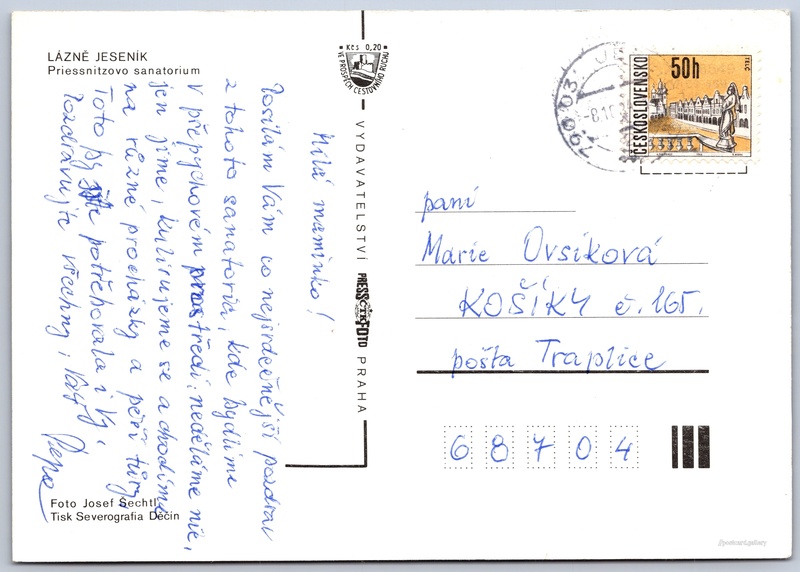 LÁZNĚ JESENÍK
Priessnitzovo sanatorium
Milá maminko!
Posílám Vám co nejsrdečnější pozdrav
z tohoto sanatoria, kde bydlíme
v přepychovém prostředí, neděláme nic,
jen jíme, kurírujeme se a chodíme
na různé procházky a pěší túry
Toto by jste potřebovala i Vy.
Pozdravujte všechny, Váš
Pepa
Foto Josef Šechtl
Tisk Severografia Děčín
Kčs 0,20
VE PROSPĚCH CESTOVNÍHO RUCHU
VYDAVATELSTVÍ PRESSFOTO PRAHA
ČTK
790 03
-8.10
ČESKOSLOVENSKO
50h
TELČ
paní
Marie Ovsíková
KOŠÍKY č. 165.
pošta Traplice
68704
//postcard.gallery